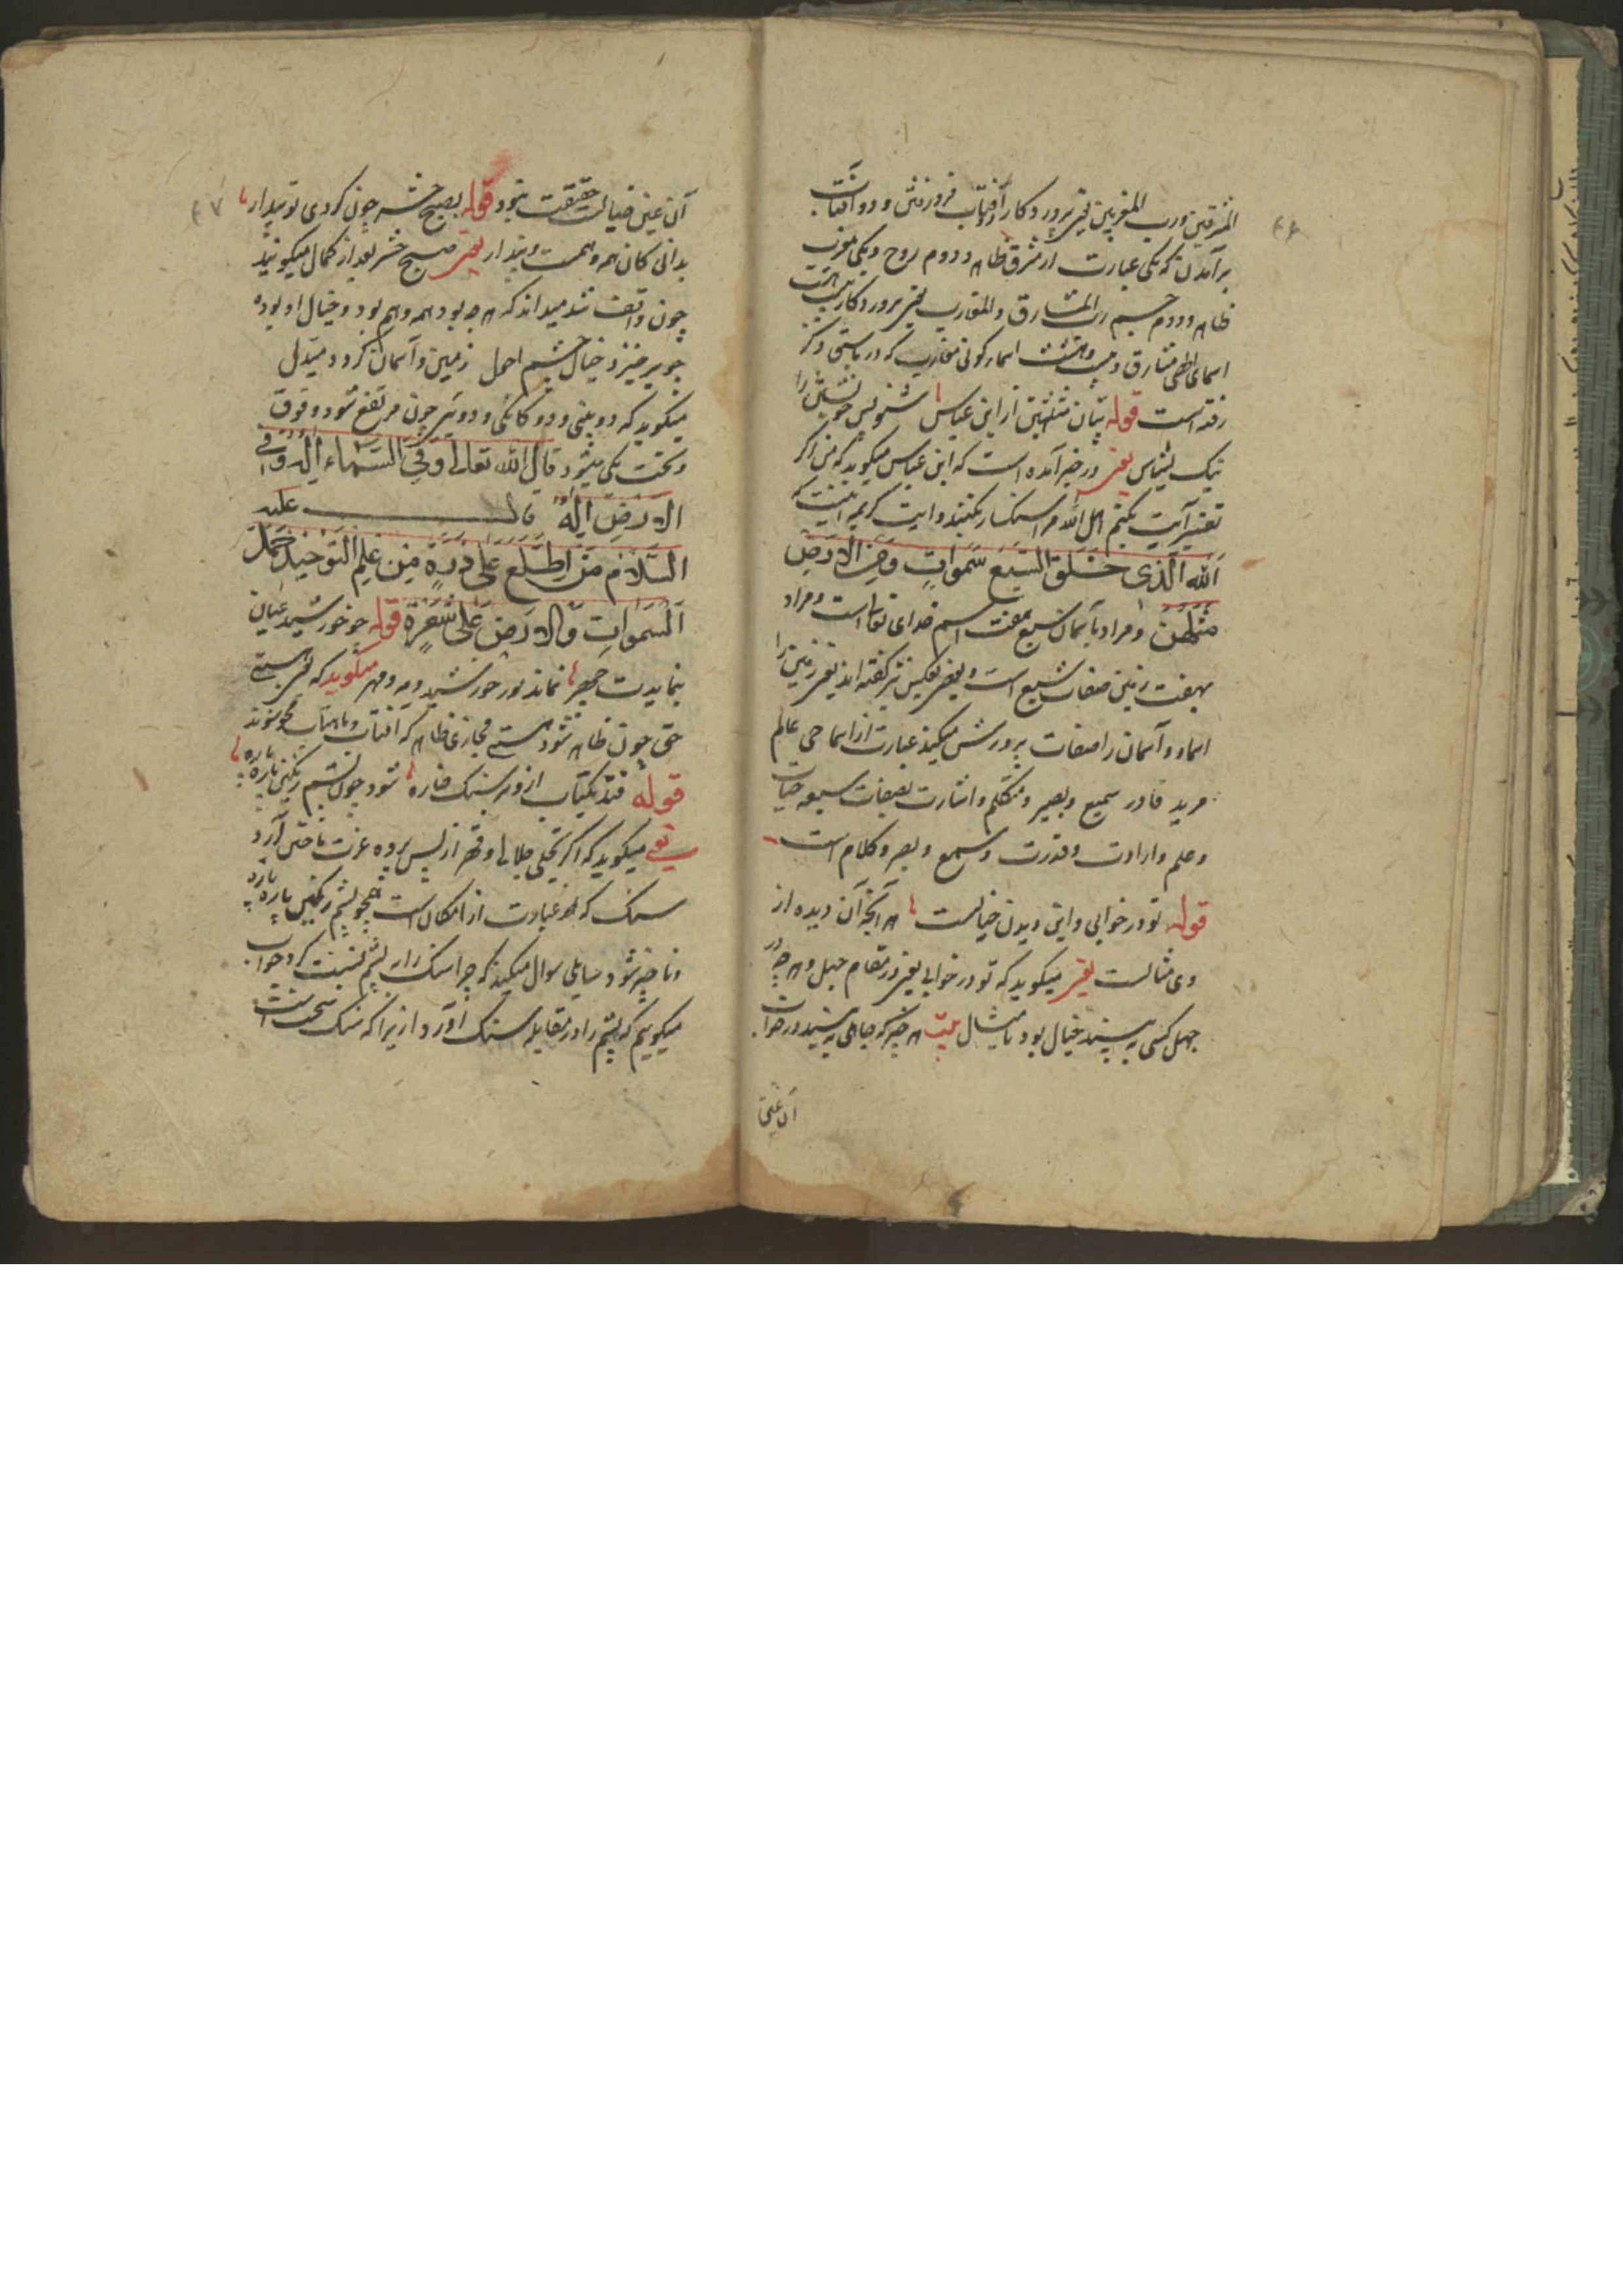 المشرقین ورب المغربین یعنی پروردکار دو آفتاب فرورفتن و دو آفتاب
برآمدن که یکی عبارت از مشرق ظاهر و دوم روح و یکی مغرب
ظاهر و دوم جسم رب المشارق والمغارب یعنی پروردکار
اسمای الهی مشارق و بیست وهشت اسماء کونی مغارب که در بالا ذکر
رفته است قوله بیان مثلهن از ابن عباس شنو پس خویشتن را
نیک بشناس یعنی در خبر آمده است که ابن عباس میکوید که من اکر
تفسیر آیت بکنم اهل الله مرا سنکسار بکنند و آیت کریمه اینست که
الله الذی خلق السبع سموات ومن الارض
مثلهن و مراد بآسمان سبع هفت اسم خدای تعالی است و مراد
بهفت زمین صفات سبع است و بعضی بعکس نیز کفته اند یعنی زمین را
اسماء و آسمان را صفات پرورش میکند عبارت از اسما حی عالم
مرید قادر سمیع و بصیر و متکلم و اشارت بصفات سبعه حیات
وعلم وارادت وقدرت وسمع وبصر وکلام است
قوله تو در خوابی و این دیدن خیالست هر آنچه آن دیده از
وی مثالست یعنی میکوید که تو در خوابی یعنی در مقام جهل و هر چه در
جهل کسی به بیند خیال بود یا مثال بیت هر چیز که جاهلی به بیند در خواب
آن عین
۶۷
آن عین خیالست حقیقت نبود قوله بصبح حشر چون کردی تو بیدار
بدانی کان همه وهمست و پندار یعنی صبح حشر بعد از کمال میکویند
چون واقف شد میداند که هر چه بود همه وهم بود و خیال او بوده
چو برخیزد خیال چشم احول زمین و آسمان کردد مبدل
میکوید که دو بینی و دوکانکی و دویی چون مرتفع شود و فوق
و تحت یکی میشود قال الله تعالی وفی السماء اله وفی
الارض اله قال علیه
السلام من اطلع علی ذرة من علم التوحید حمل
السموات والارض علی شعرة قوله چو خورشید عیان
بنمایدت چهر نماند نور خورشید و مه و مهر میکوید که یعنی هستی
حق چون ظاهر شود هستی مجازی ظاهر که آفتاب و ماهتاب محو شوند
قوله فتد یکتاب از و بر سنک خاره شود چون پشم رنکین پاره پاره
یعنی میکوید که اکر تجلی جلالی و قهر از پس پرده عزت تاختن آرد
سنک که او عبارت از امکان است همچو پشم رنکین پاره پاره
و ناچیز شود سایلی سوال میکند که چرا سنک را به پشم نسبت کرد جواب
میکوییم که پشم را در مقابله سنک آورد از زیرا که سنک سخت است